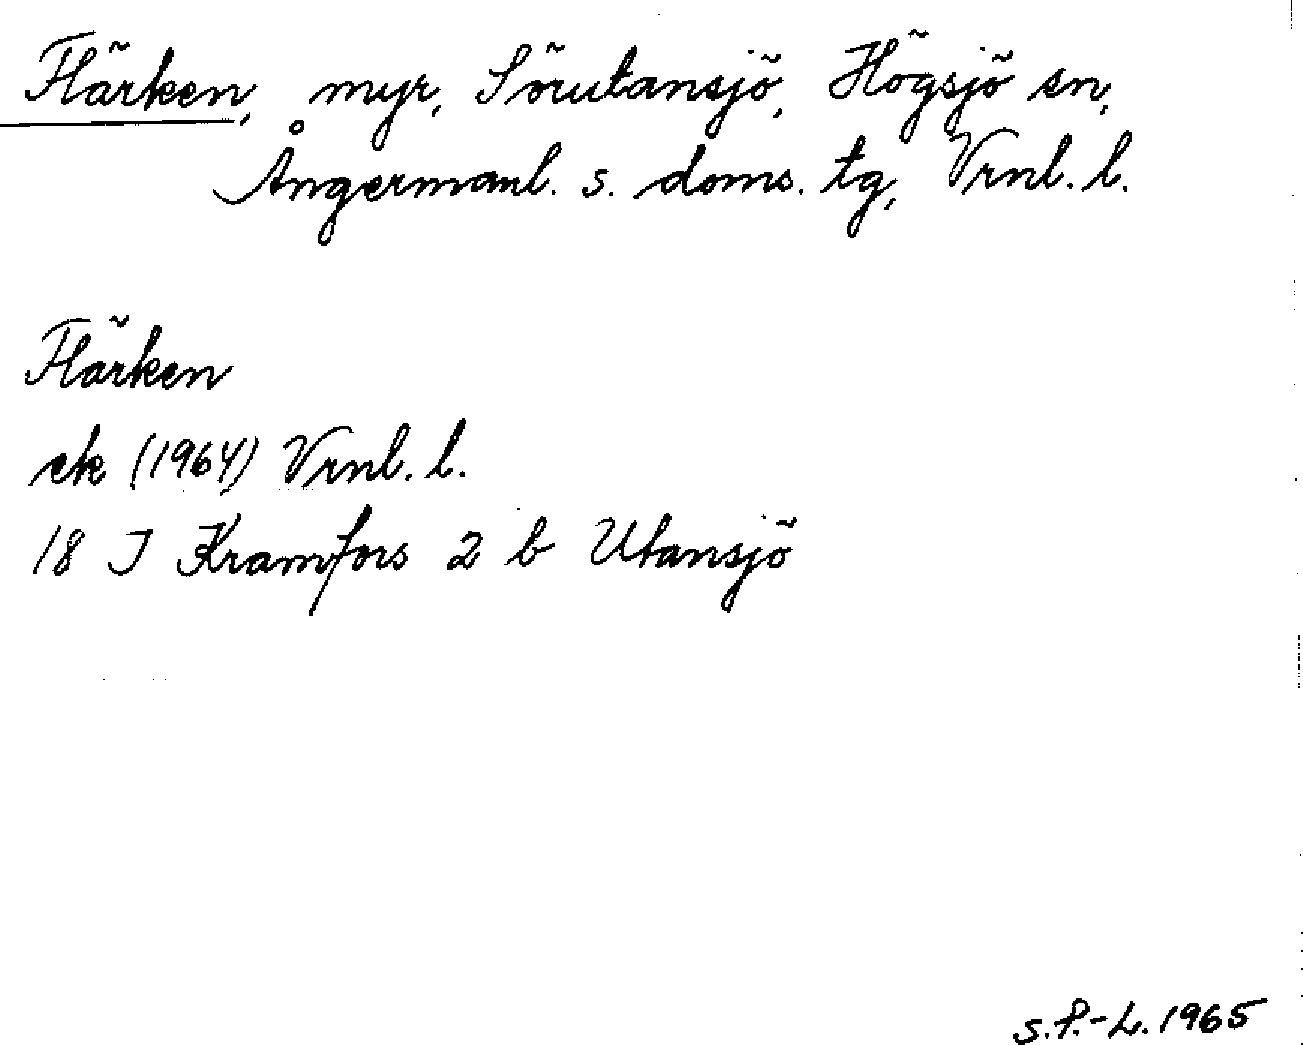 Flärken, myr, Sörutansjö, Högsjö sn,
Ångermanl. s. doms. tg, Vrnl. l.
Flärken
ek (1964) Vrnl. l.
18 I Kramfors 2 b Utansjö
S.P.-L. 1965